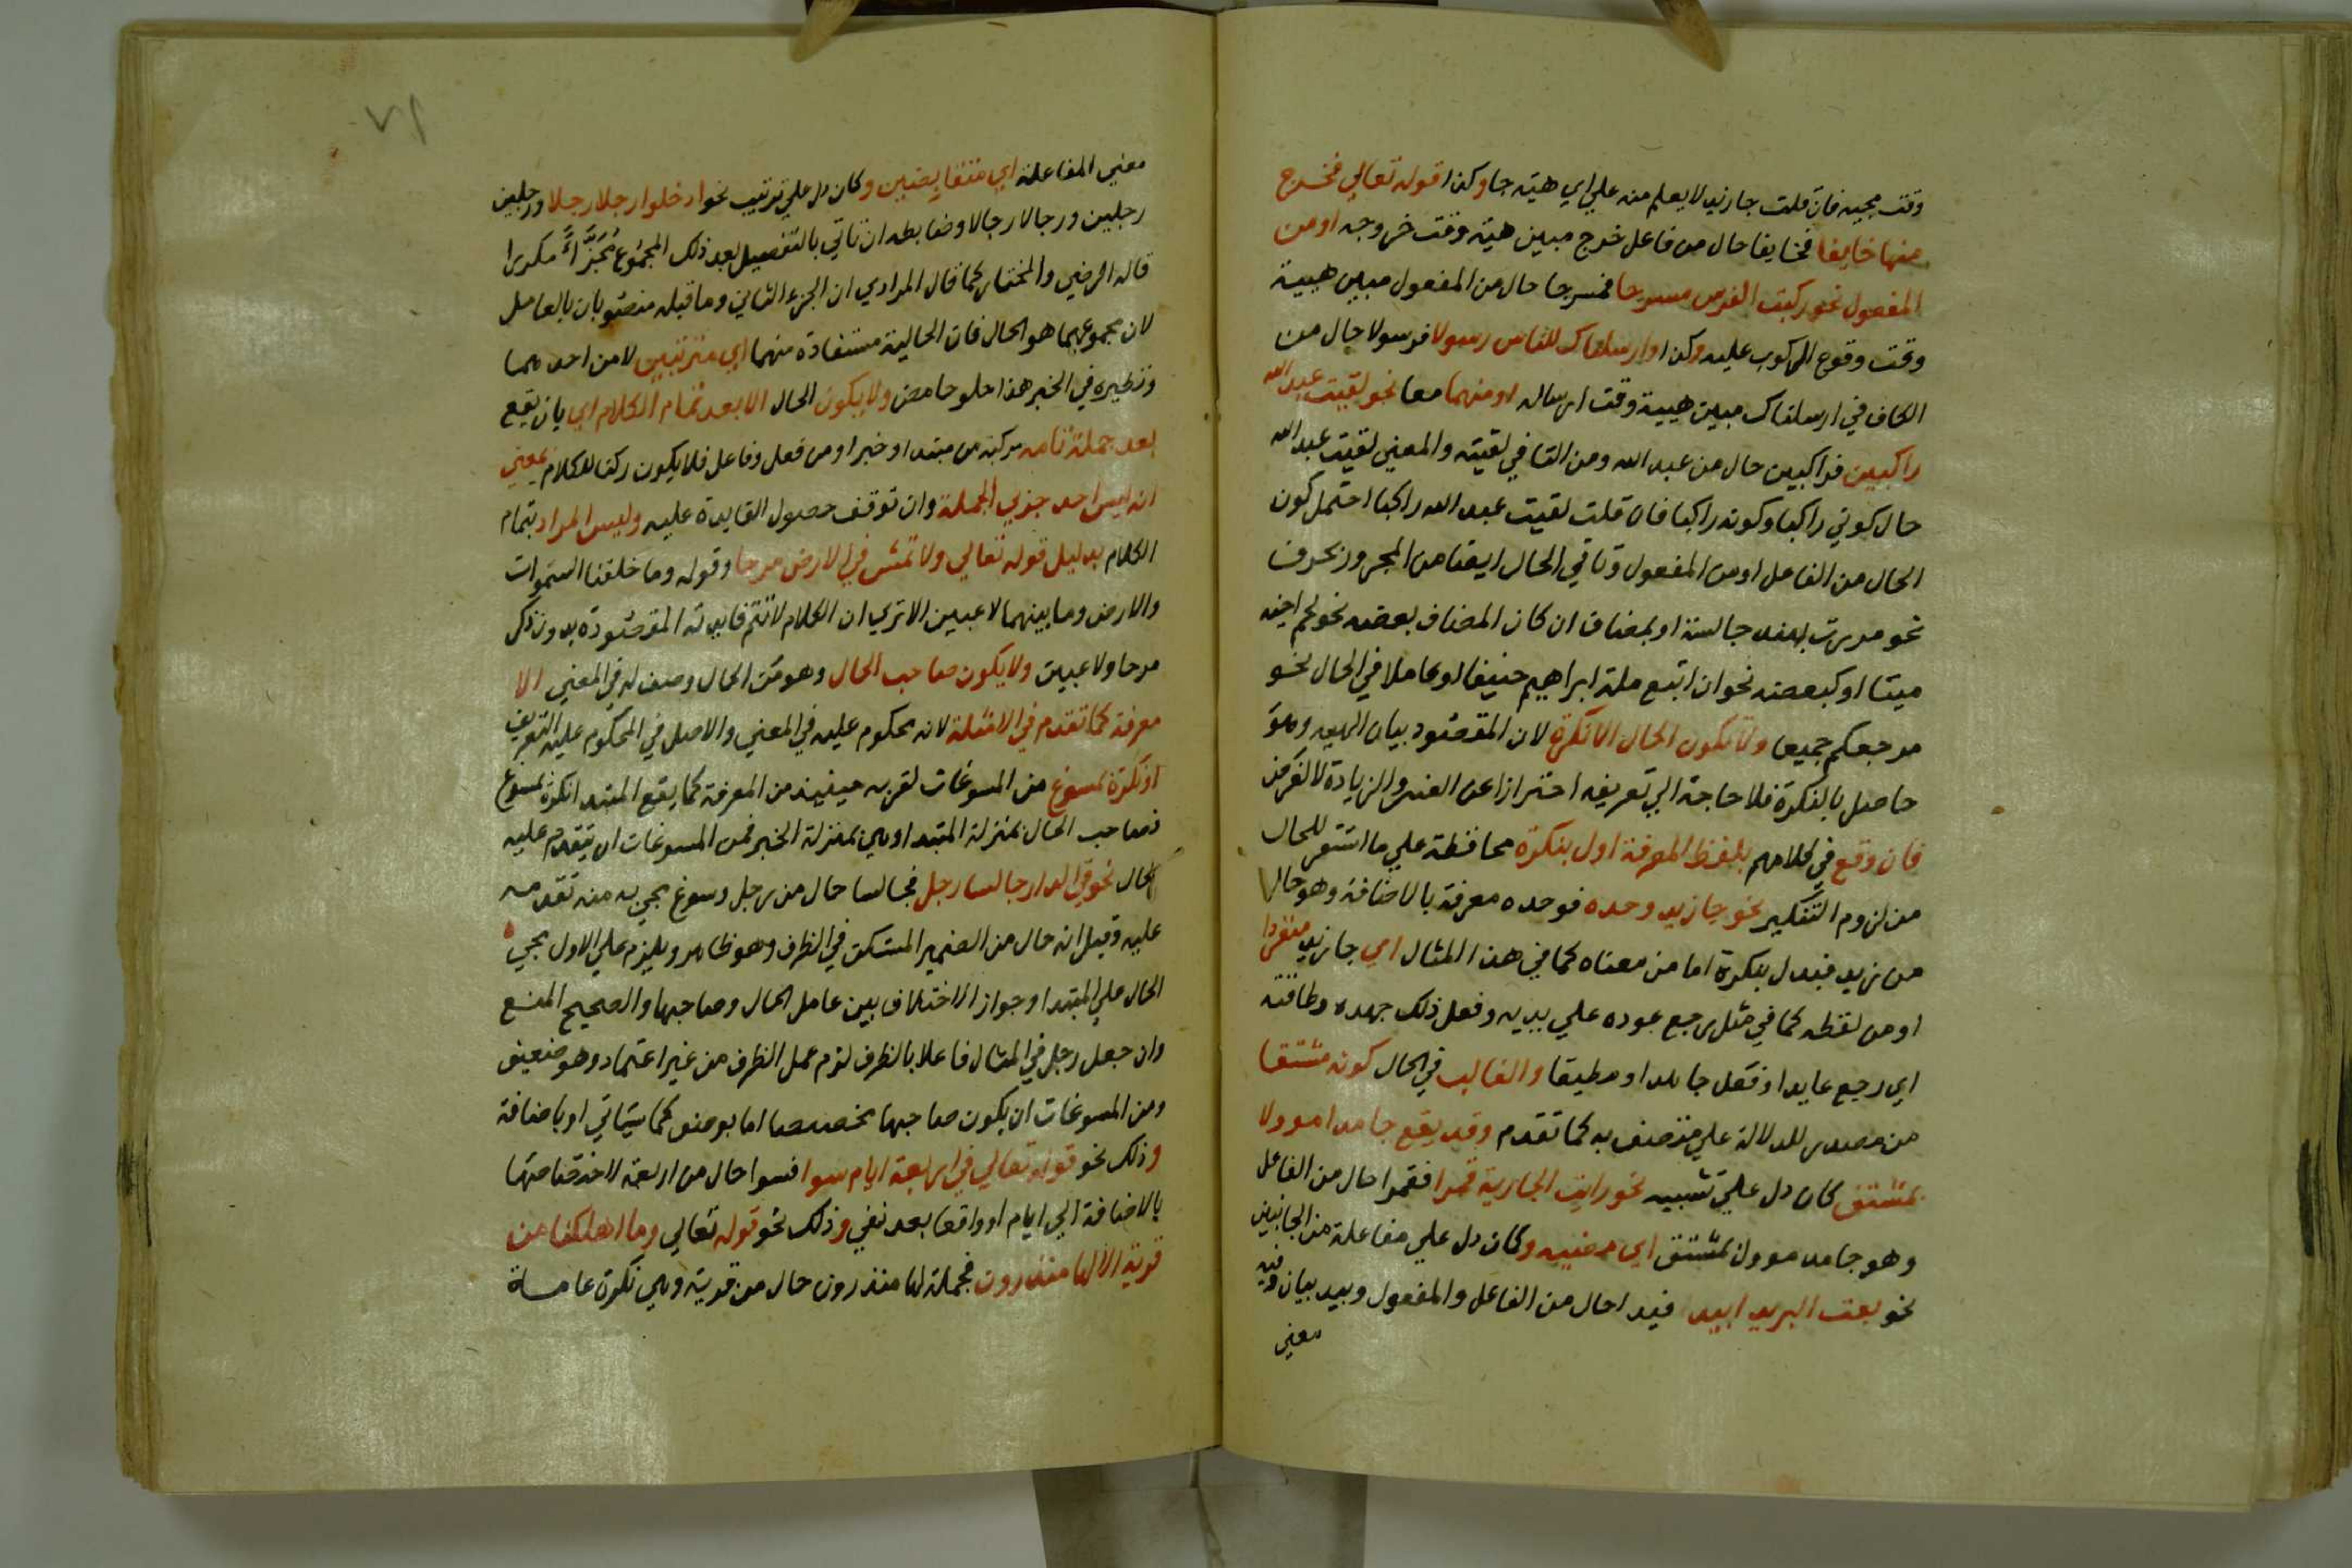 وقت مجيه فان قلت جا زيد لا يعلم منه علي اي هيته جا وكذا قوله تعالي فخرج
منها خايفا فخايفا حال من فاعل خرج مبين هيته وقت خروجه او من
المفعول نحو ركبت الفرس مسرجا فمسرجا حال من المفعول مبين هيية
وقت وقوع الركوب عليه وكذا وارسلناك للناس رسولا فرسولا حال من
الكاف في ارسلناك مبين هيية وقت ارساله او منهما معا نحو لقيت عبد الله
راكبين فراكبين حال من عبد الله ومن التا في لقيته والمعني لقيت عبد الله
حال كوني راكبا وكونه راكبا فان قلت لقيت عبد الله راكبا احتمل كون
الحال من الفاعل او من المفعول وتاتي الحال ايضا من المجرور بحرف
نحو مررت بهند جالسة او بمضاف ان كان المضاف بعضه نحو لحم اخيه
ميتا او كبعضه نحو ان اتبع ملة ابراهيم حنيفا او عاملا في الحال نحو
مرجعكم جميعا ولا تكون الحال الا نكرة لان المقصود بيان الهيية وهو
حاصل بالنكرة فلا حاجة الي تعريفه احترازا عن العبث والزيادة لا لغرض
فان وقع في كلامهم بلفظ المعرفة اول بنكرة محافظة علي ما استقر للحال
من لزوم التنكير نحو جا زيد وحده فوحده معرفة بالاضافة وهو حال
من زيد فيدل بنكرة اما من معناه كما في هذا المثال اي جا زيد منفردا
او من لفظه كما في مثل رجع عوده علي بديه وفعل ذلك جهده وطاقته
اي رجع عايدا وفعل جاهدا ومطيقا والغالب في الحال كونه مشتقا
من مصدر للدلالة علي متصف به كما تقدم وقد يقع جامدا موولا
بمشتق كان دل علي تشبيه نحو رايت الجارية قمرا فقمرا حال من الفاعل
وهو جامد موول بمشتق اي مضييه وكان دل علي مفاعلة من الجانبين
نحو بعت البر يدا بيد فيدا حال من الفاعل والمفعول وبيد بيان وفيه
معني
٧٩
معني المفاعلة اي متقايضين وكان دل علي ترتيب نحو ادخلوا رجلا رجلا ورجلين
رجلين ورجالا رجالا وضابطه ان تاتي بالتفصيل بعد ذلك المجموع مُجَزَّاً مكررا
قاله الرضي والمختار كما قال المرادي ان الجزء الثاني وما قبله منصوبان بالعامل
لان مجموعهما هو الحال فان الحالية مستفادة منهما اي مترتبين لا من احدهما
ونظيره في الخبر هذا حلو حامض ولا يكون الحال الا بعد تمام الكلام اي بان يقع
بعد جملة تامه مركبة من مبتدا وخبر او من فعل وفاعل فلا يكون ركنا للكلام بمعني
انه ليس احد جزيي الجملة وان توقف حصول الفايدة عليه وليس المراد بتمام
الكلام بدليل قوله تعالي ولا تمش في الارض مرحا وقوله وما خلقنا السموات
والارض وما بينهما لاعبين الا تري ان الكلام لا تتم فايدته المقصودة بدون ذكر
مرحا ولاعبين ولا يكون صاحب الحال وهو من الحال وصف له في المعني الا
معرفة كما تقدم في الامثلة لانه محكوم عليه في المعني والاصل في المحكوم عليه التعريف
او نكرة بمسوغ من المسوغات لقربه حينيذ من المعرفة كما يقع المبتدا نكرة بمسوغ
فصاحب الحال بمنزلة المبتدا وهي بمنزلة الخبر فمن المسوغات ان يتقدم عليه
الحال نحو في الدار جالسا رجل فجالسا حال من رجل وسوغ مجييه منه تقدمه
عليه وقيل انه حال من الضمير المستكن في الظرف وهو ظاهر ويلزم علي الاول مجي
الحال علي المبتدا وجواز الاختلاف بين عامل الحال وصاحبها والصحيح المنع
وان جعل رجل في المثال فاعلا بالظرف لزم عمل الظرف من غير اعتماد وهو ضعيف
ومن المسوغات ان يكون صاحبها مخصصا اما بوصف كما سيتاتي او باضافة
وذلك نحو قوله تعالي في اربعة ايام سوا فسوا حال من اربعة لاختصاصها
بالاضافة الي ايام او واقعا بعد نفي وذلك نحو قوله تعالي وما اهلكنا من
قرية الا لها منذرون فجملة لها منذرون حال من قرية وهي نكرة عامة